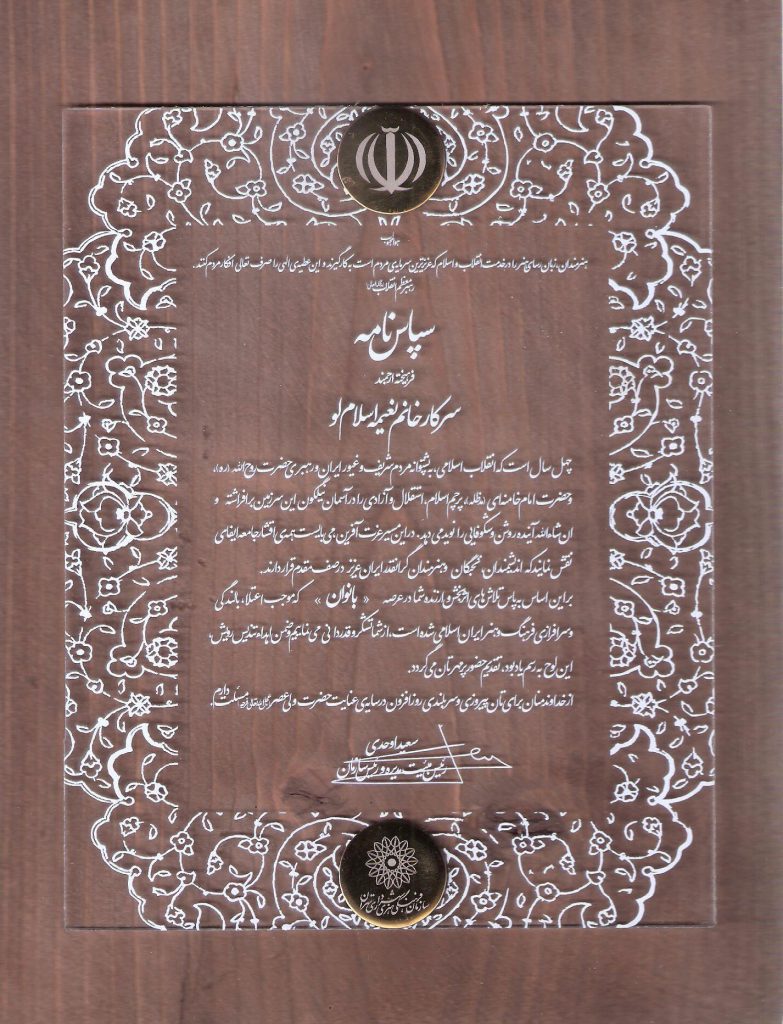 هوالمحبوب
هنرمندان، زبان رسای هنر را در خدمت انقلاب و اسلام که عزیزترین سرمایه‌ی مردم است به کار گیرند و این عطیه‌ی الهی را صرف تعالی افکار مردم کنند.
رهبر معظم انقلاب
سپاس نامه
فرهیخته ارجمند
سرکار خانم نعیمه اسلام لو
چهل سال است که انقلاب اسلامی، به پشتوانه مردم شریف و غیور ایران و رهبری حضرت روح الله (ره)،
و حضرت امام خامنه‌ای مدظله، پرچم اسلام، استقلال و آزادی را در آسمان نیلگون این سرزمین برافراشته و
ان شاءالله آینده روشن و شکوفایی را نوید می دهد. در این مسیر عزت آفرین می بایست همه‌ی اقشار جامعه ایفای
نقش نمایند که اندیشمندان، نخبگان و هنرمندان گرانقدر ایران عزیز در صف مقدم قرار دارند.
بر این اساس به پاس تلاش های اثربخش و ارزنده شما در عرصه « بانوان » که موجب اعتلا، بالندگی
و سرافرازی فرهنگ و هنر ایران اسلامی شده است، از شما تشکر و قدردانی می نماییم و ضمن اهداء تندیس رویش،
این لوح به رسم یادبود، تقدیم حضور پر مهرتان می گردد.
از خداوند منان برای تان پیروزی و سربلندی روزافزون در سایه‌ی عنایت حضرت ولی عصر مسئلت دارم.
سعید اوحدی
رئیس هیئت مدیره و رئیس سازمان
سازمان فرهنگی هنری شهرداری تهران